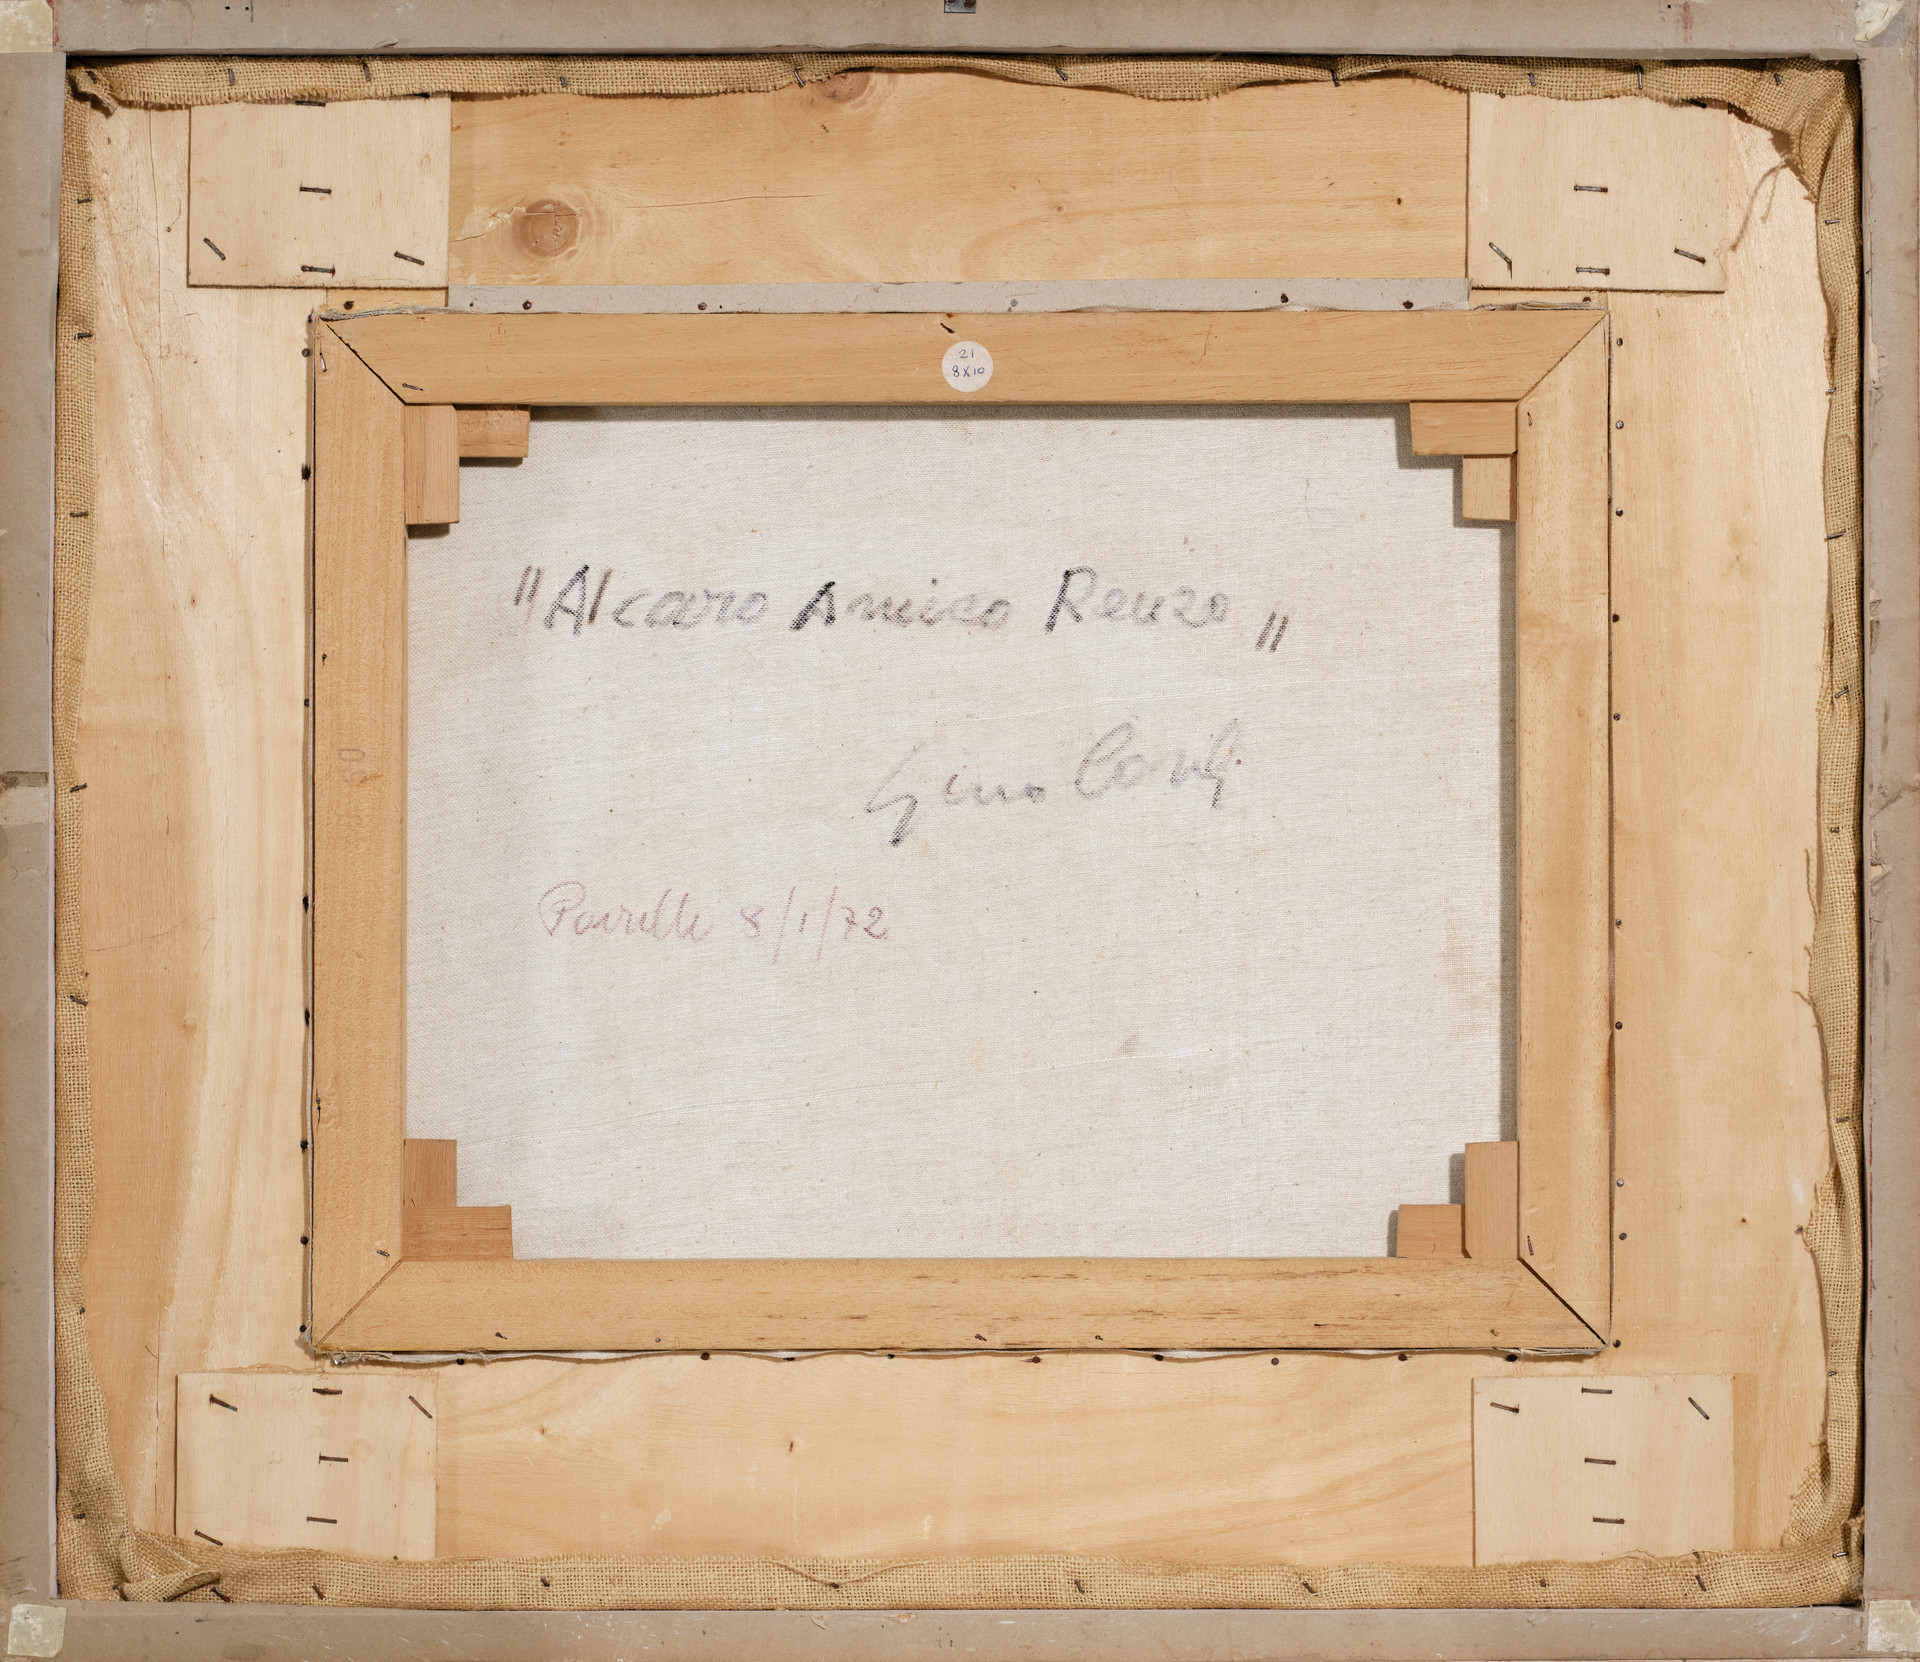 21
8X10
"Al caro Amico Renzo"
Gino
8/1/72